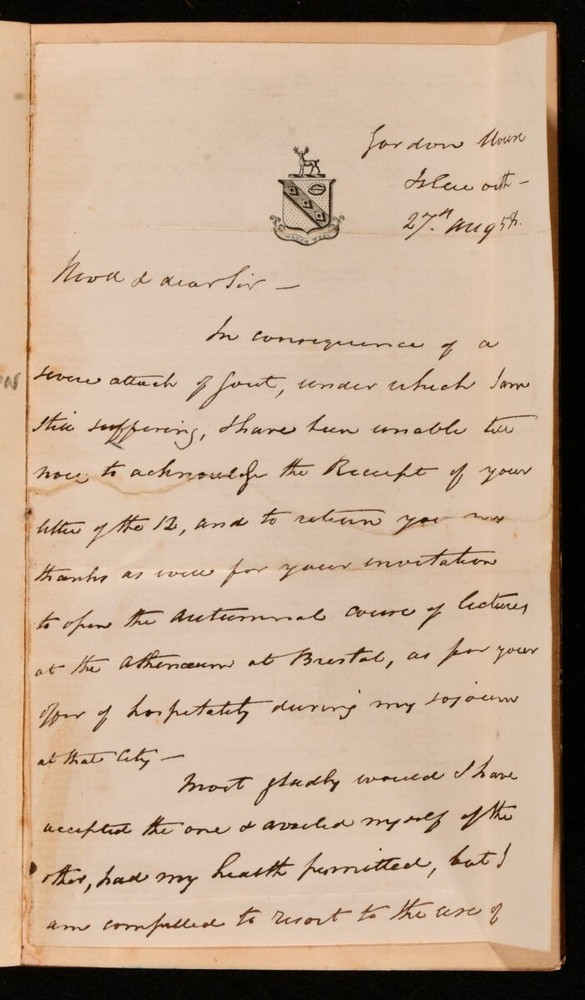 Gordon House
Isleworth –
27th Aug 58.
My dear Sir –
In consequence of a
severe attack of Gout, under which I am
still suffering, I have been unable till
now to acknowledge the Receipt of your
letter of the 12, and to return you my
thanks as well for your invitation
to open the Autumnal course of lectures
at the Athenæum at Bristol, as for your
offer of hospitality during my sojourn
at that City –
Most gladly would I have
accepted the one & availed myself of the
other, had my health permitted, but I
am compelled to resort to the use of